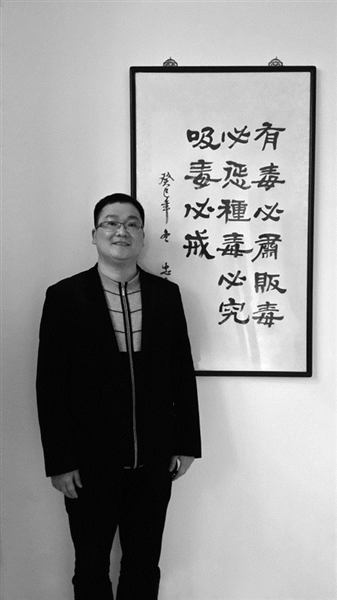 有毒必肅販毒
必惩種毒必究
吸毒必戒
癸巳年冬